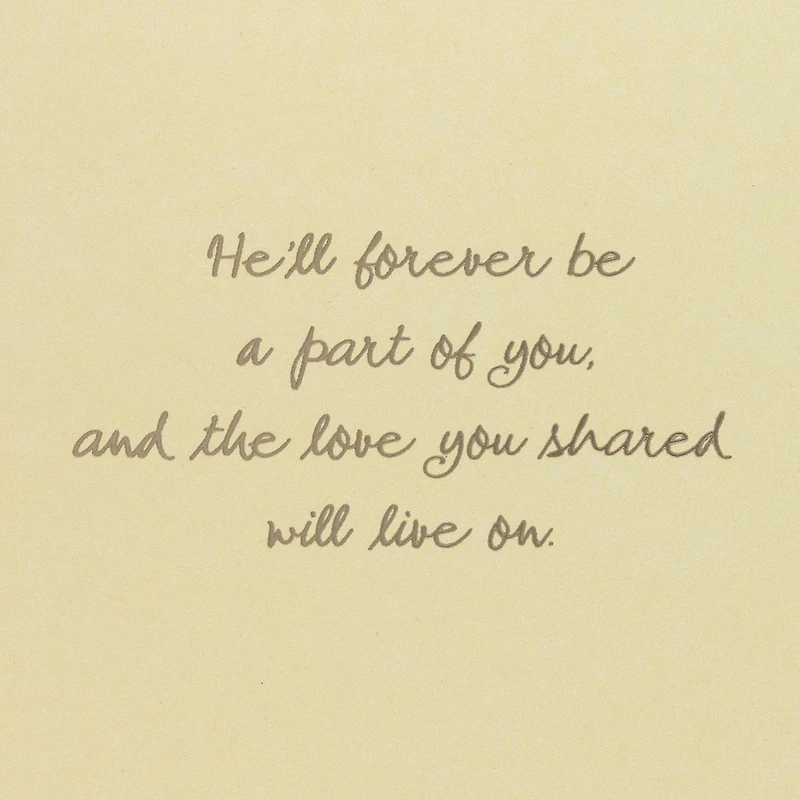 He'll forever be
a part of you,
and the love you shared
will live on.